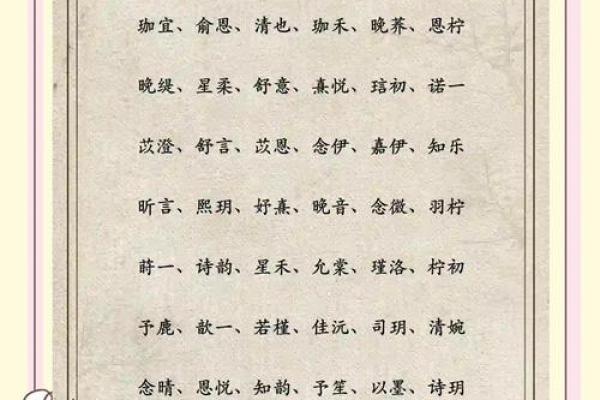 珈宜、俞恩、清也、珈禾、晚荞、恩柠
晚缇、星柔、舒意、熹悦、琂初、诺一
苡澄、舒言、苡恩、念伊、嘉伊、知乐
昕言、熙玥、好熹、晚音、念微、羽柠
莳一、诗韵、星禾、允棠、瑾洛、柠初
予鹿、歆一、若槿、佳沅、司玥、清婉
念晴、恩悦、知韵、予笙、以墨、诗玥